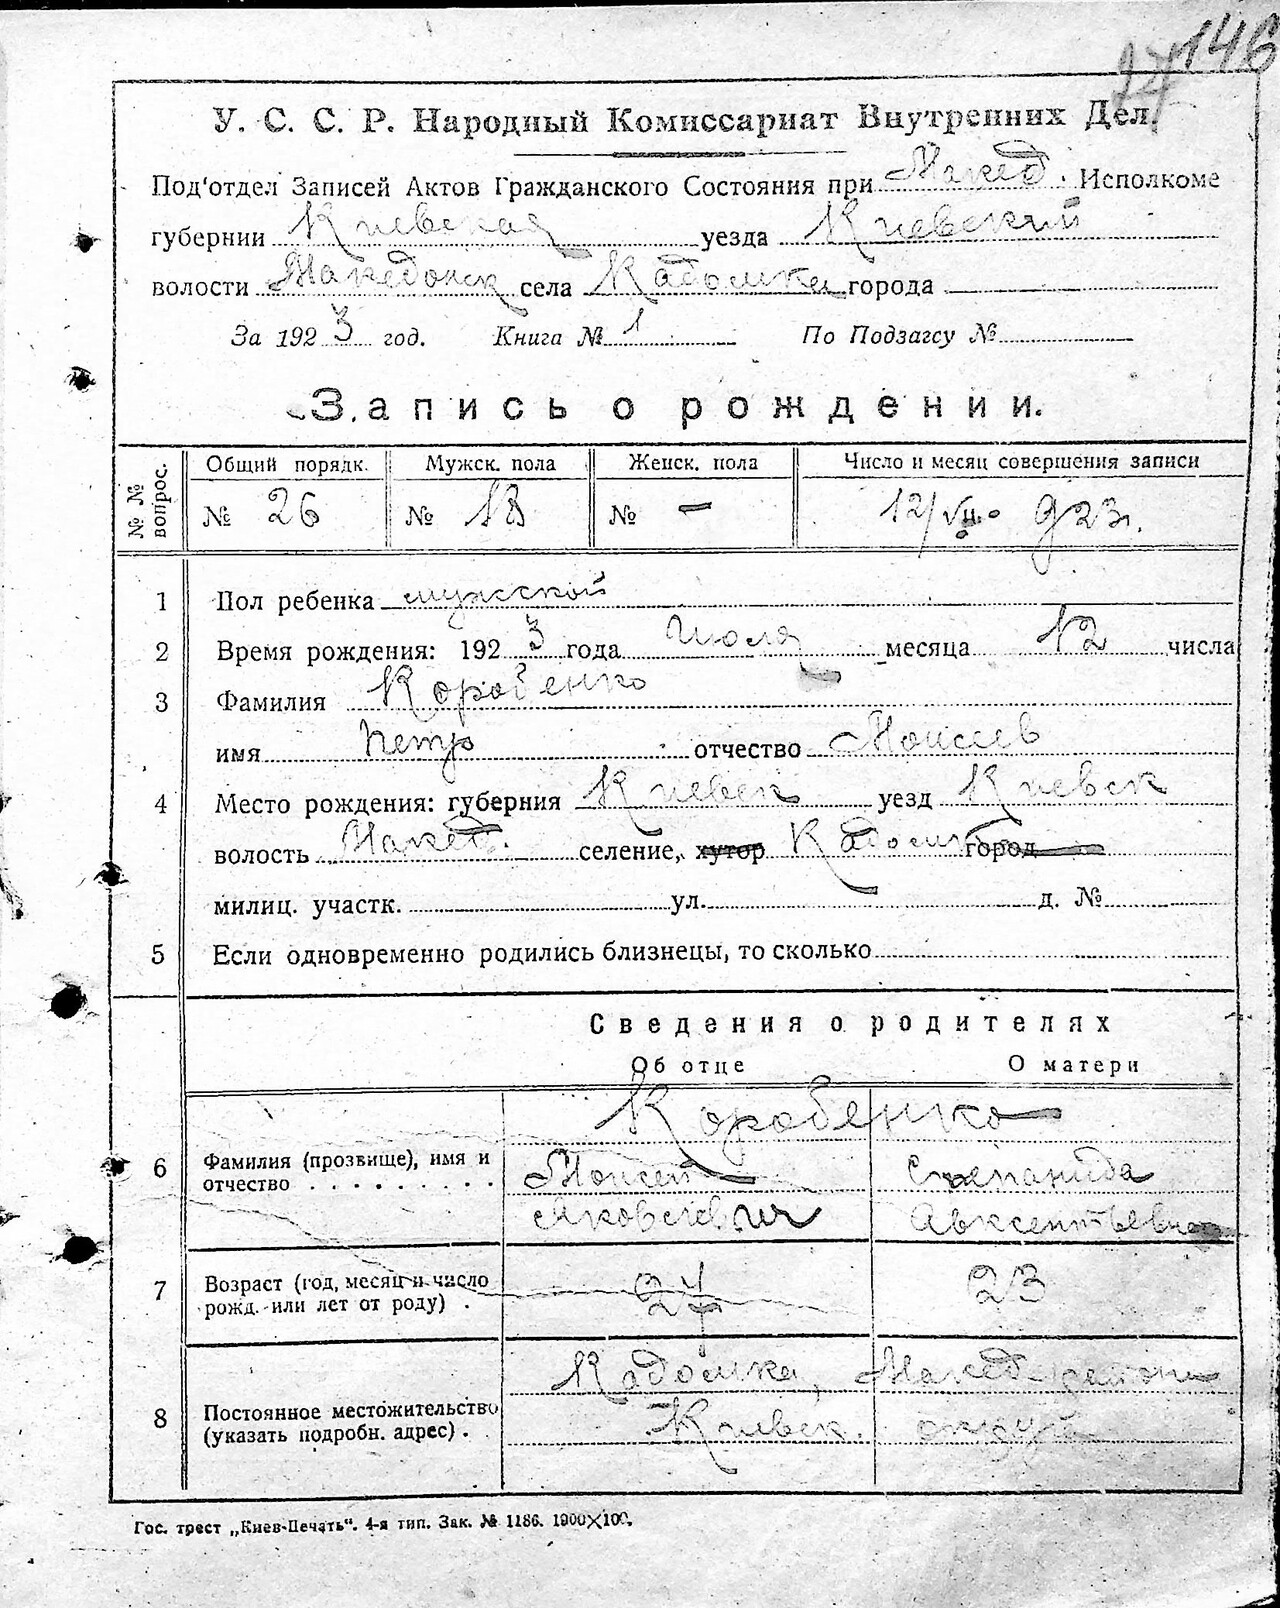 146
У. С. С. Р. Народный Комиссариат Внутренних Дел.
Под'отдел Записей Актов Гражданского Состояния при Макед. Исполкоме
губернии Киевская уезда Киевский
волости Македонск села Кадомка города
За 1923 год. Книга № 1 По Подзагсу №
Запись о рождении.
№№ вопрос. Общий порядк. Мужск. пола Женск. пола Число и месяц совершения записи
№ 26 № 13 № — 12/VII 923 г.
1 Пол ребенка мужской
2 Время рождения: 1923 года Июля месяца 12 числа
3 Фамилия Коробенко
имя Петр отчество Моисеев
4 Место рождения: губерния Киевск уезд Киевск
волость Макед. селение, хутор Кадомка город
милиц. участк. ул. д. №
5 Если одновременно родились близнецы, то сколько
Сведения о родителях
Об отце О матери
Коробенко
6 Фамилия (прозвище), имя и Моисей Степанида
отчество . . . . . . . . . Яковлевич Авксентьевна
7 Возраст (год, месяц и число
рожд. или лет от роду) . 27 23
Кадомка, Макед. района
8 Постоянное местожительство
(указать подробн. адрес) . Киевск. округа
Гос. трест „Киев-Печать“. 4-я тип. Зак. № 1186. 1900×100.